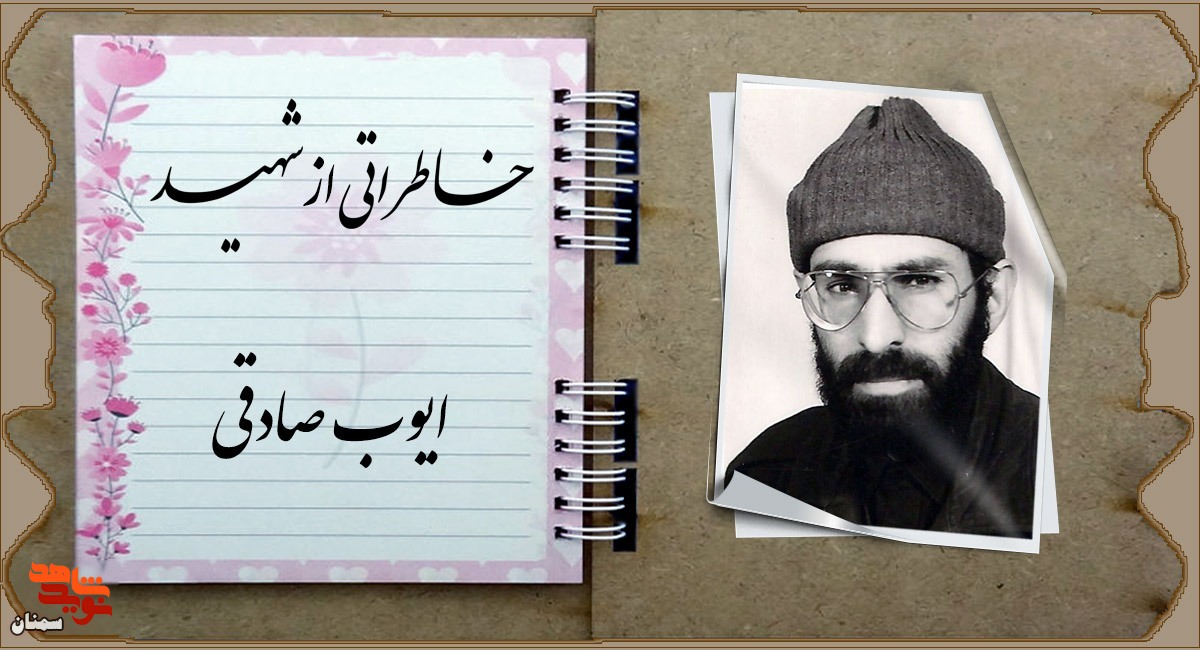 خاطراتی از شهید
ایوب صادقی
نوید شاهد
سمنان